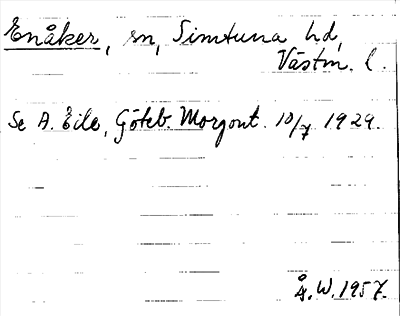 Enåker, sn, Simtuna hd,
Västm. l.
Se A. Eile, Göteb. Morgont. 10/7 1929.
Å. W. 1957.